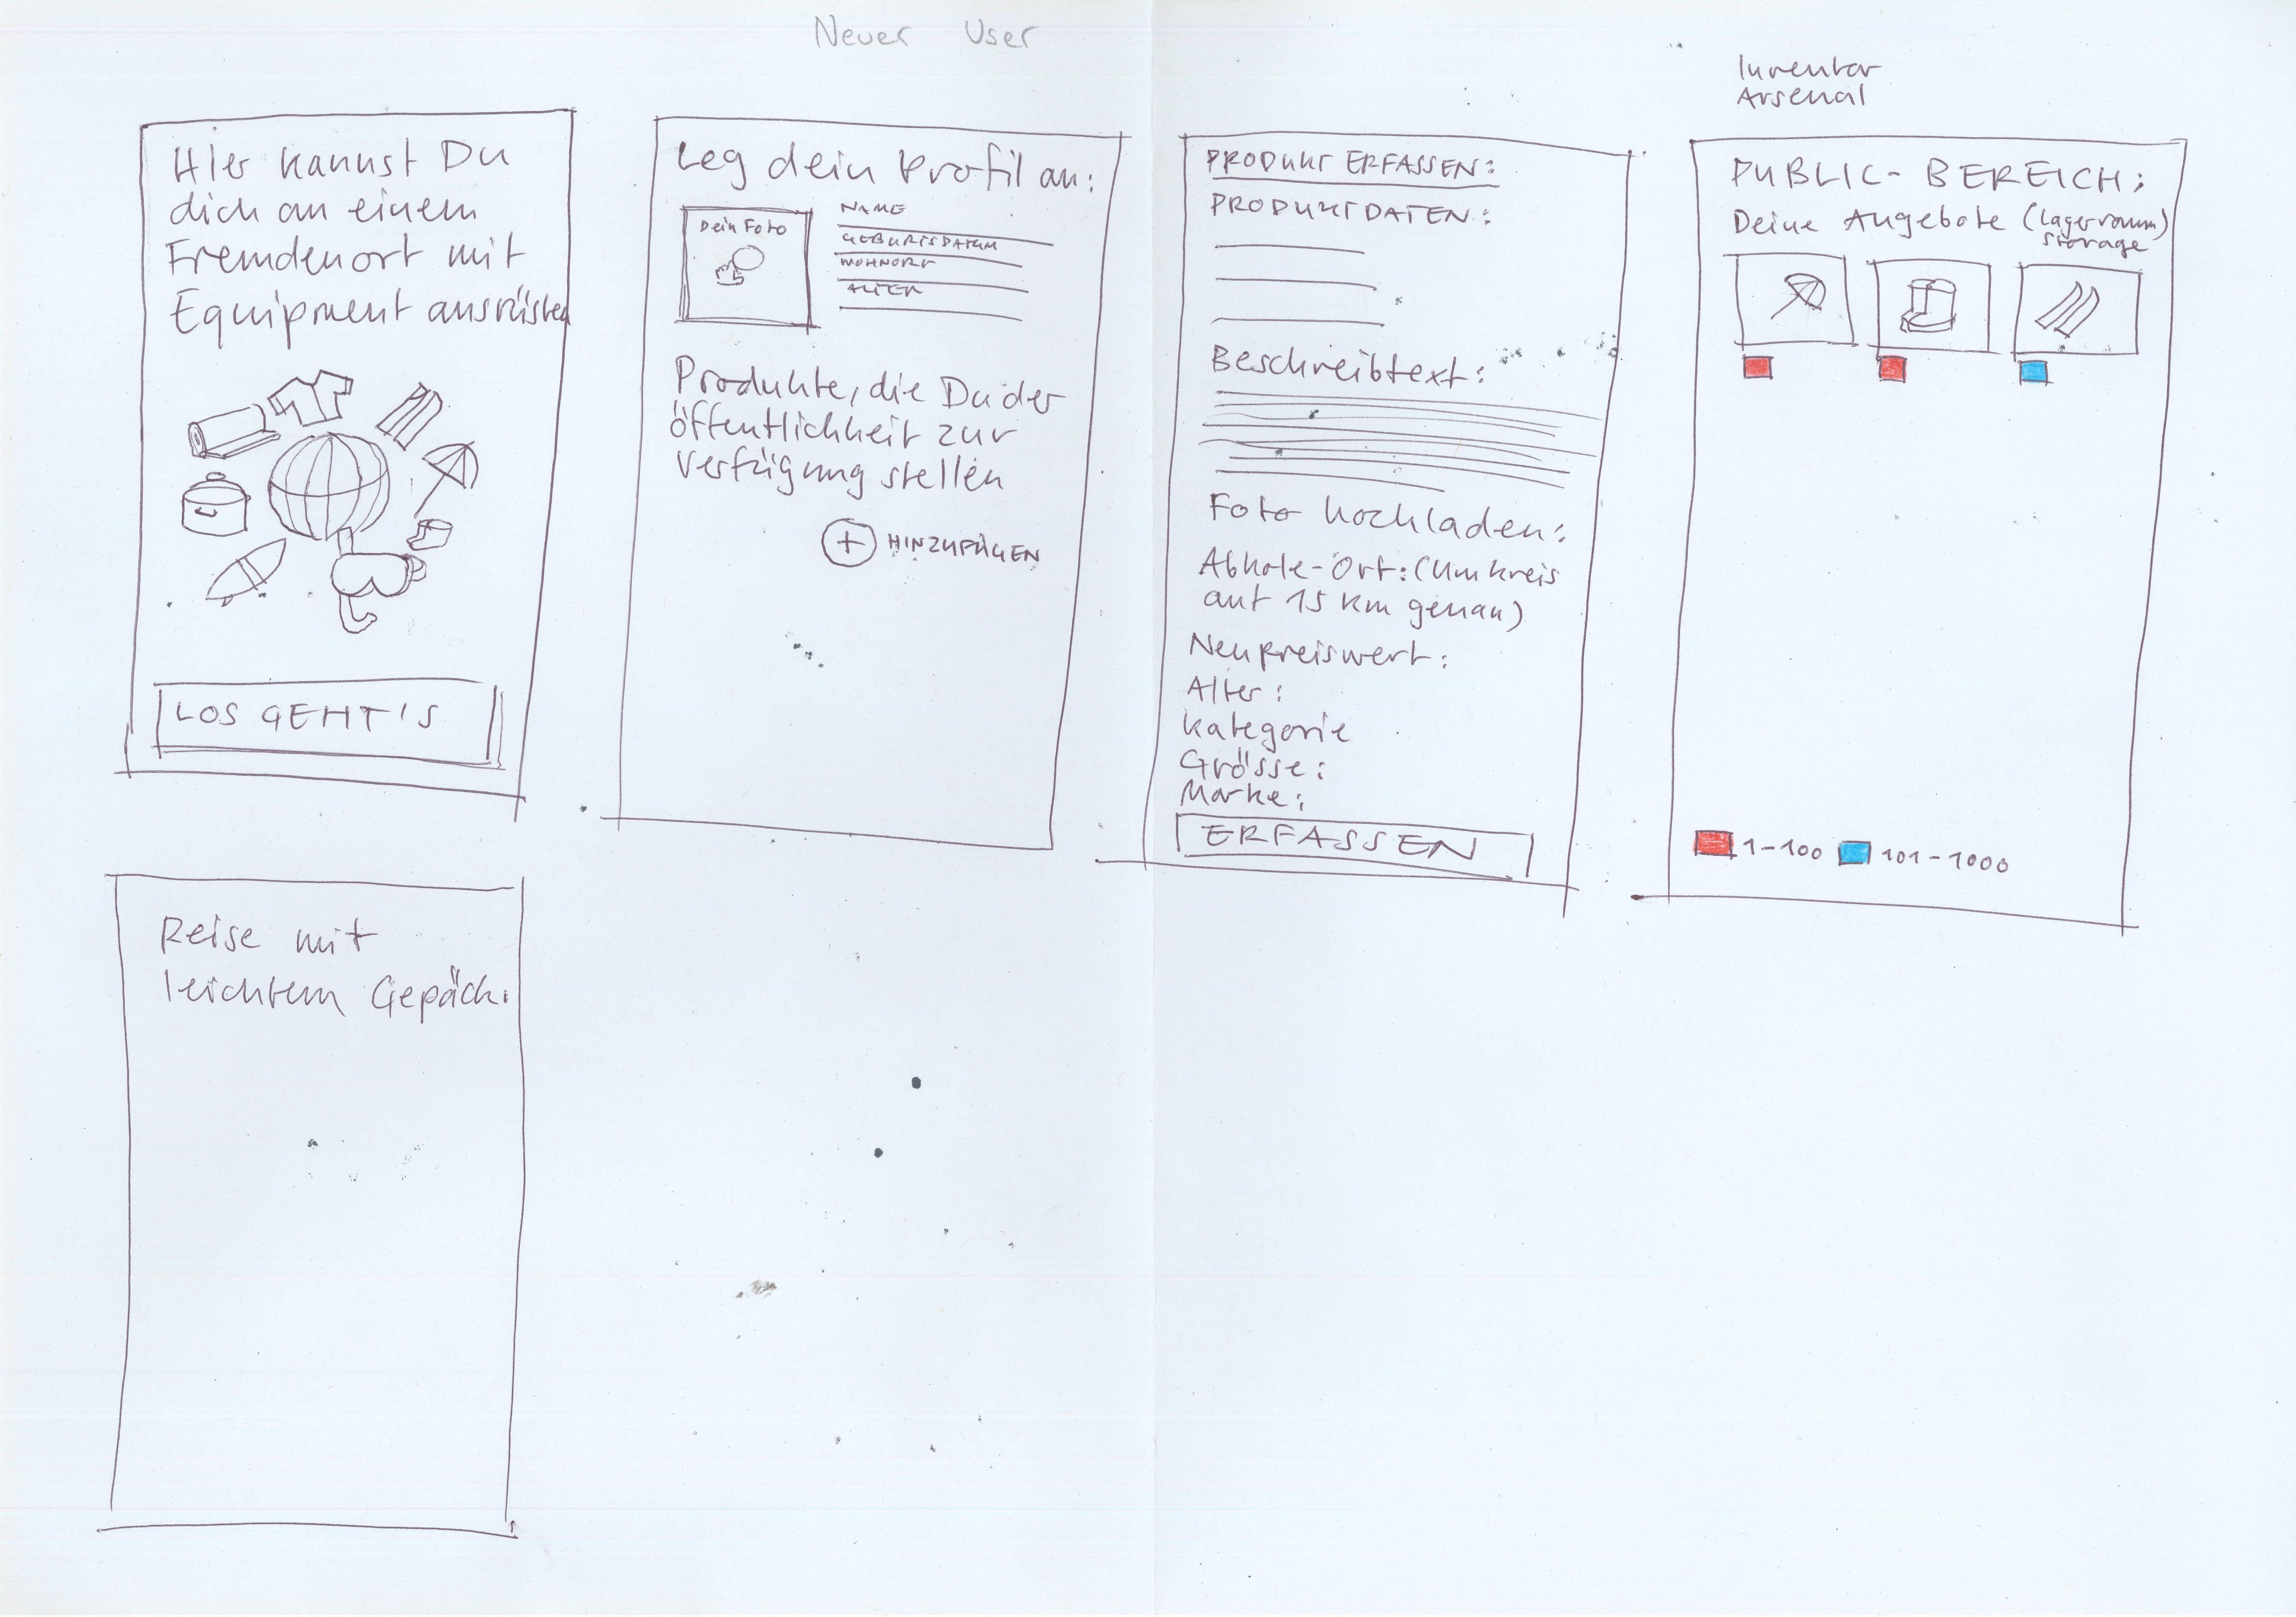 Neuer User
Hier kannst Du
dich an einem
Fremdenort mit
Equipment ausrüsten
LOS GEHT'S
Leg dein Profil an:
Dein Foto
NAME
GEBURTSDATUM
WOHNORT
ALTER
Produkte, die Du der
öffentlichkeit zur
Verfügung stellen
+ HINZUFÜGEN
PRODUKT ERFASSEN:
PRODUKTDATEN:
Beschreibtext:
Foto hochladen:
Abhole-Ort: (Umkreis
auf 15 km genau)
Neupreiswert:
Alter:
Kategorie
Grösse:
Marke:
ERFASSEN
Inventar
Arsenal
PUBLIC-BEREICH:
Deine Angebote (Lagerraum)
storage
1-100 101-1000
Reise mit
leichtem Gepäck.